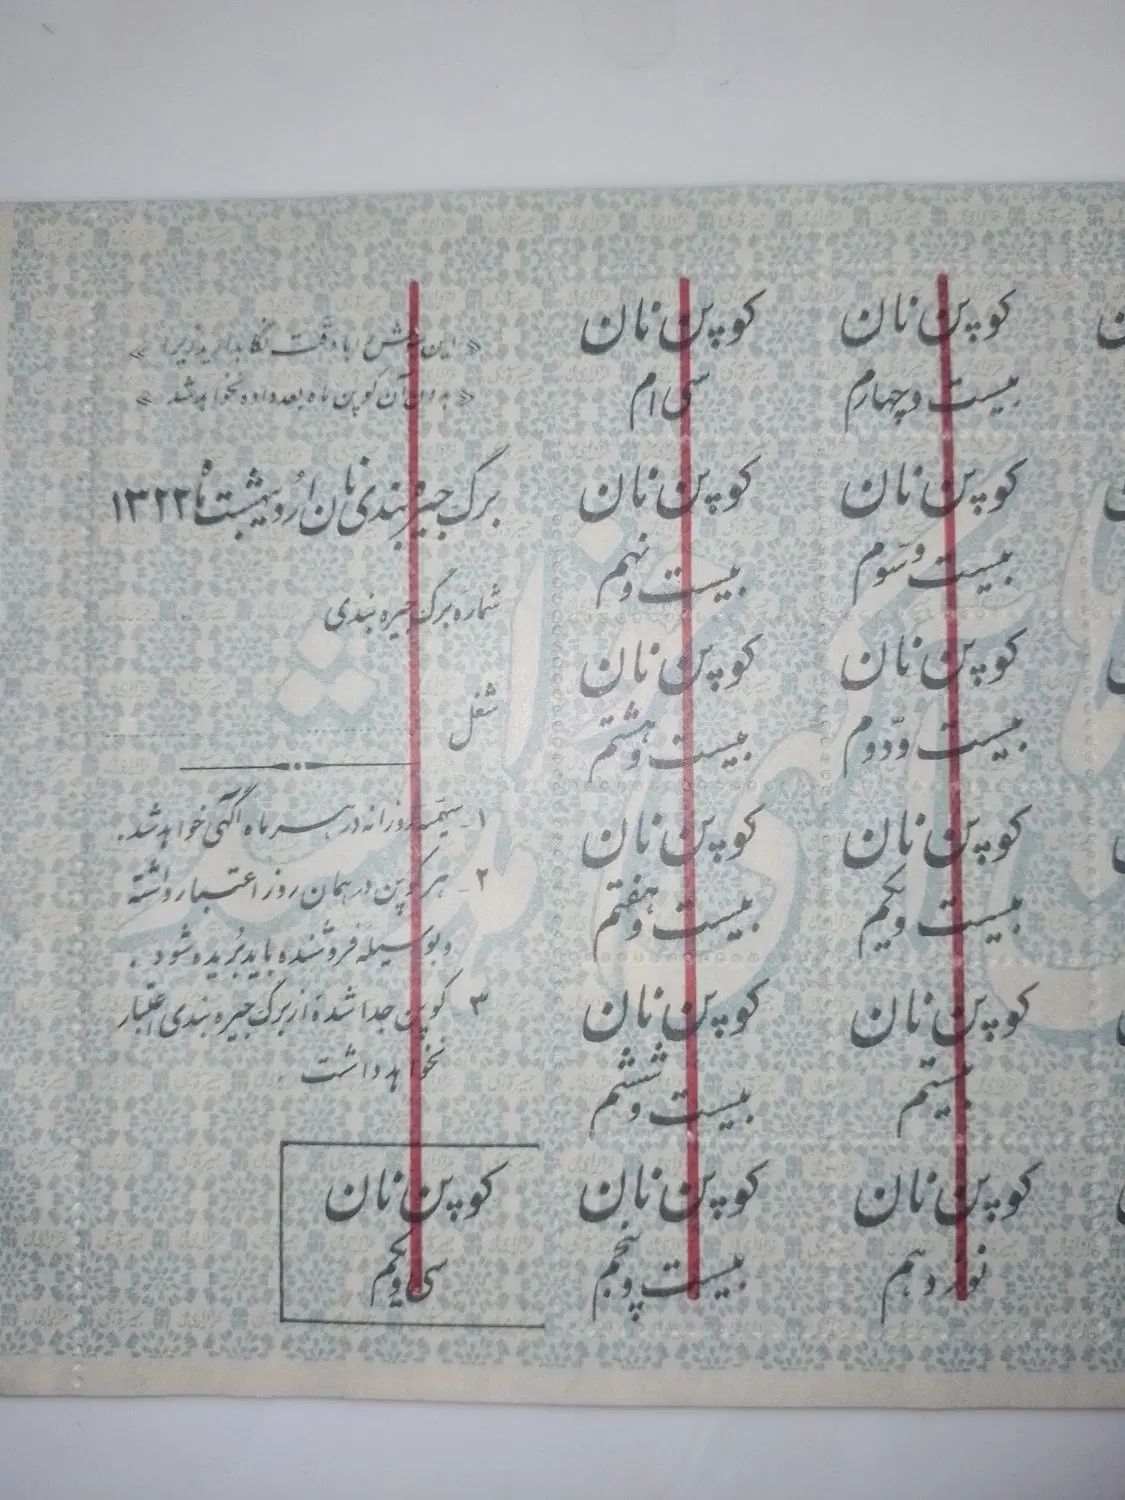 کوپن نان
بیست و چهارم
کوپن نان
بیست و سوم
کوپن نان
بیست و دوم
کوپن نان
بیست و یکم
کوپن نان
بیستم
کوپن نان
نوزدهم
کوپن نان
سی ام
کوپن نان
بیست و نهم
کوپن نان
بیست و هشتم
کوپن نان
بیست و هفتم
کوپن نان
بیست و ششم
کوپن نان
بیست و پنجم
« این شرح را با دقت نگاهدارید زیرا »
« بدون آن کوپن ماه بعد داده نخواهد شد »
برگ جیره بندی نان اردیبهشت ماه ۱۳۲۲
شماره برگ جیره بندی
شغل
۱- سهمیه روزانه در هر سر ماه آگهی خواهد شد.
۲- هر کوپن در همان روز اعتبار داشته
و بوسیله فروشنده باید بریده شود.
۳ کوپن جدا شده از برگ جیره بندی اعتبار
نخواهد داشت.
کوپن نان
سی و یکم